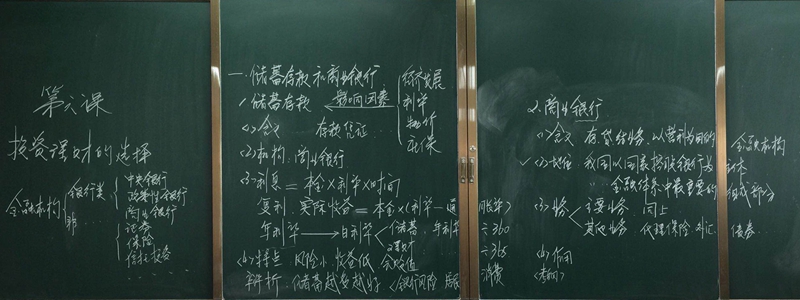 第六课
投资理财的选择
金融机构
银行类
中央银行
政策性银行
商业银行
非
证券
保险
信托投资
一.储蓄存款和商业银行
1.储蓄存款 影响因素
经济发展
利率
物价
社保
<1>含义 存款凭证...
<2>机构:商业银行
<3>利息=本金×利率×时间
复利.实际收益=本金×(利率-通
年利率→日利率
储蓄.年利率÷360
÷365
<4>特点 风险小.收益低
辨析:储蓄越多越好
银行风险
消费
2.商业银行
<1>含义 存.贷.结业务.以营利为目的 金融机构
<2>地位 我国以国家控股银行为主体
金融体系中最重要的组成部分
<3>业务
主要业务:同上
其他业务 代理保险.外汇.债券...
<4>作用